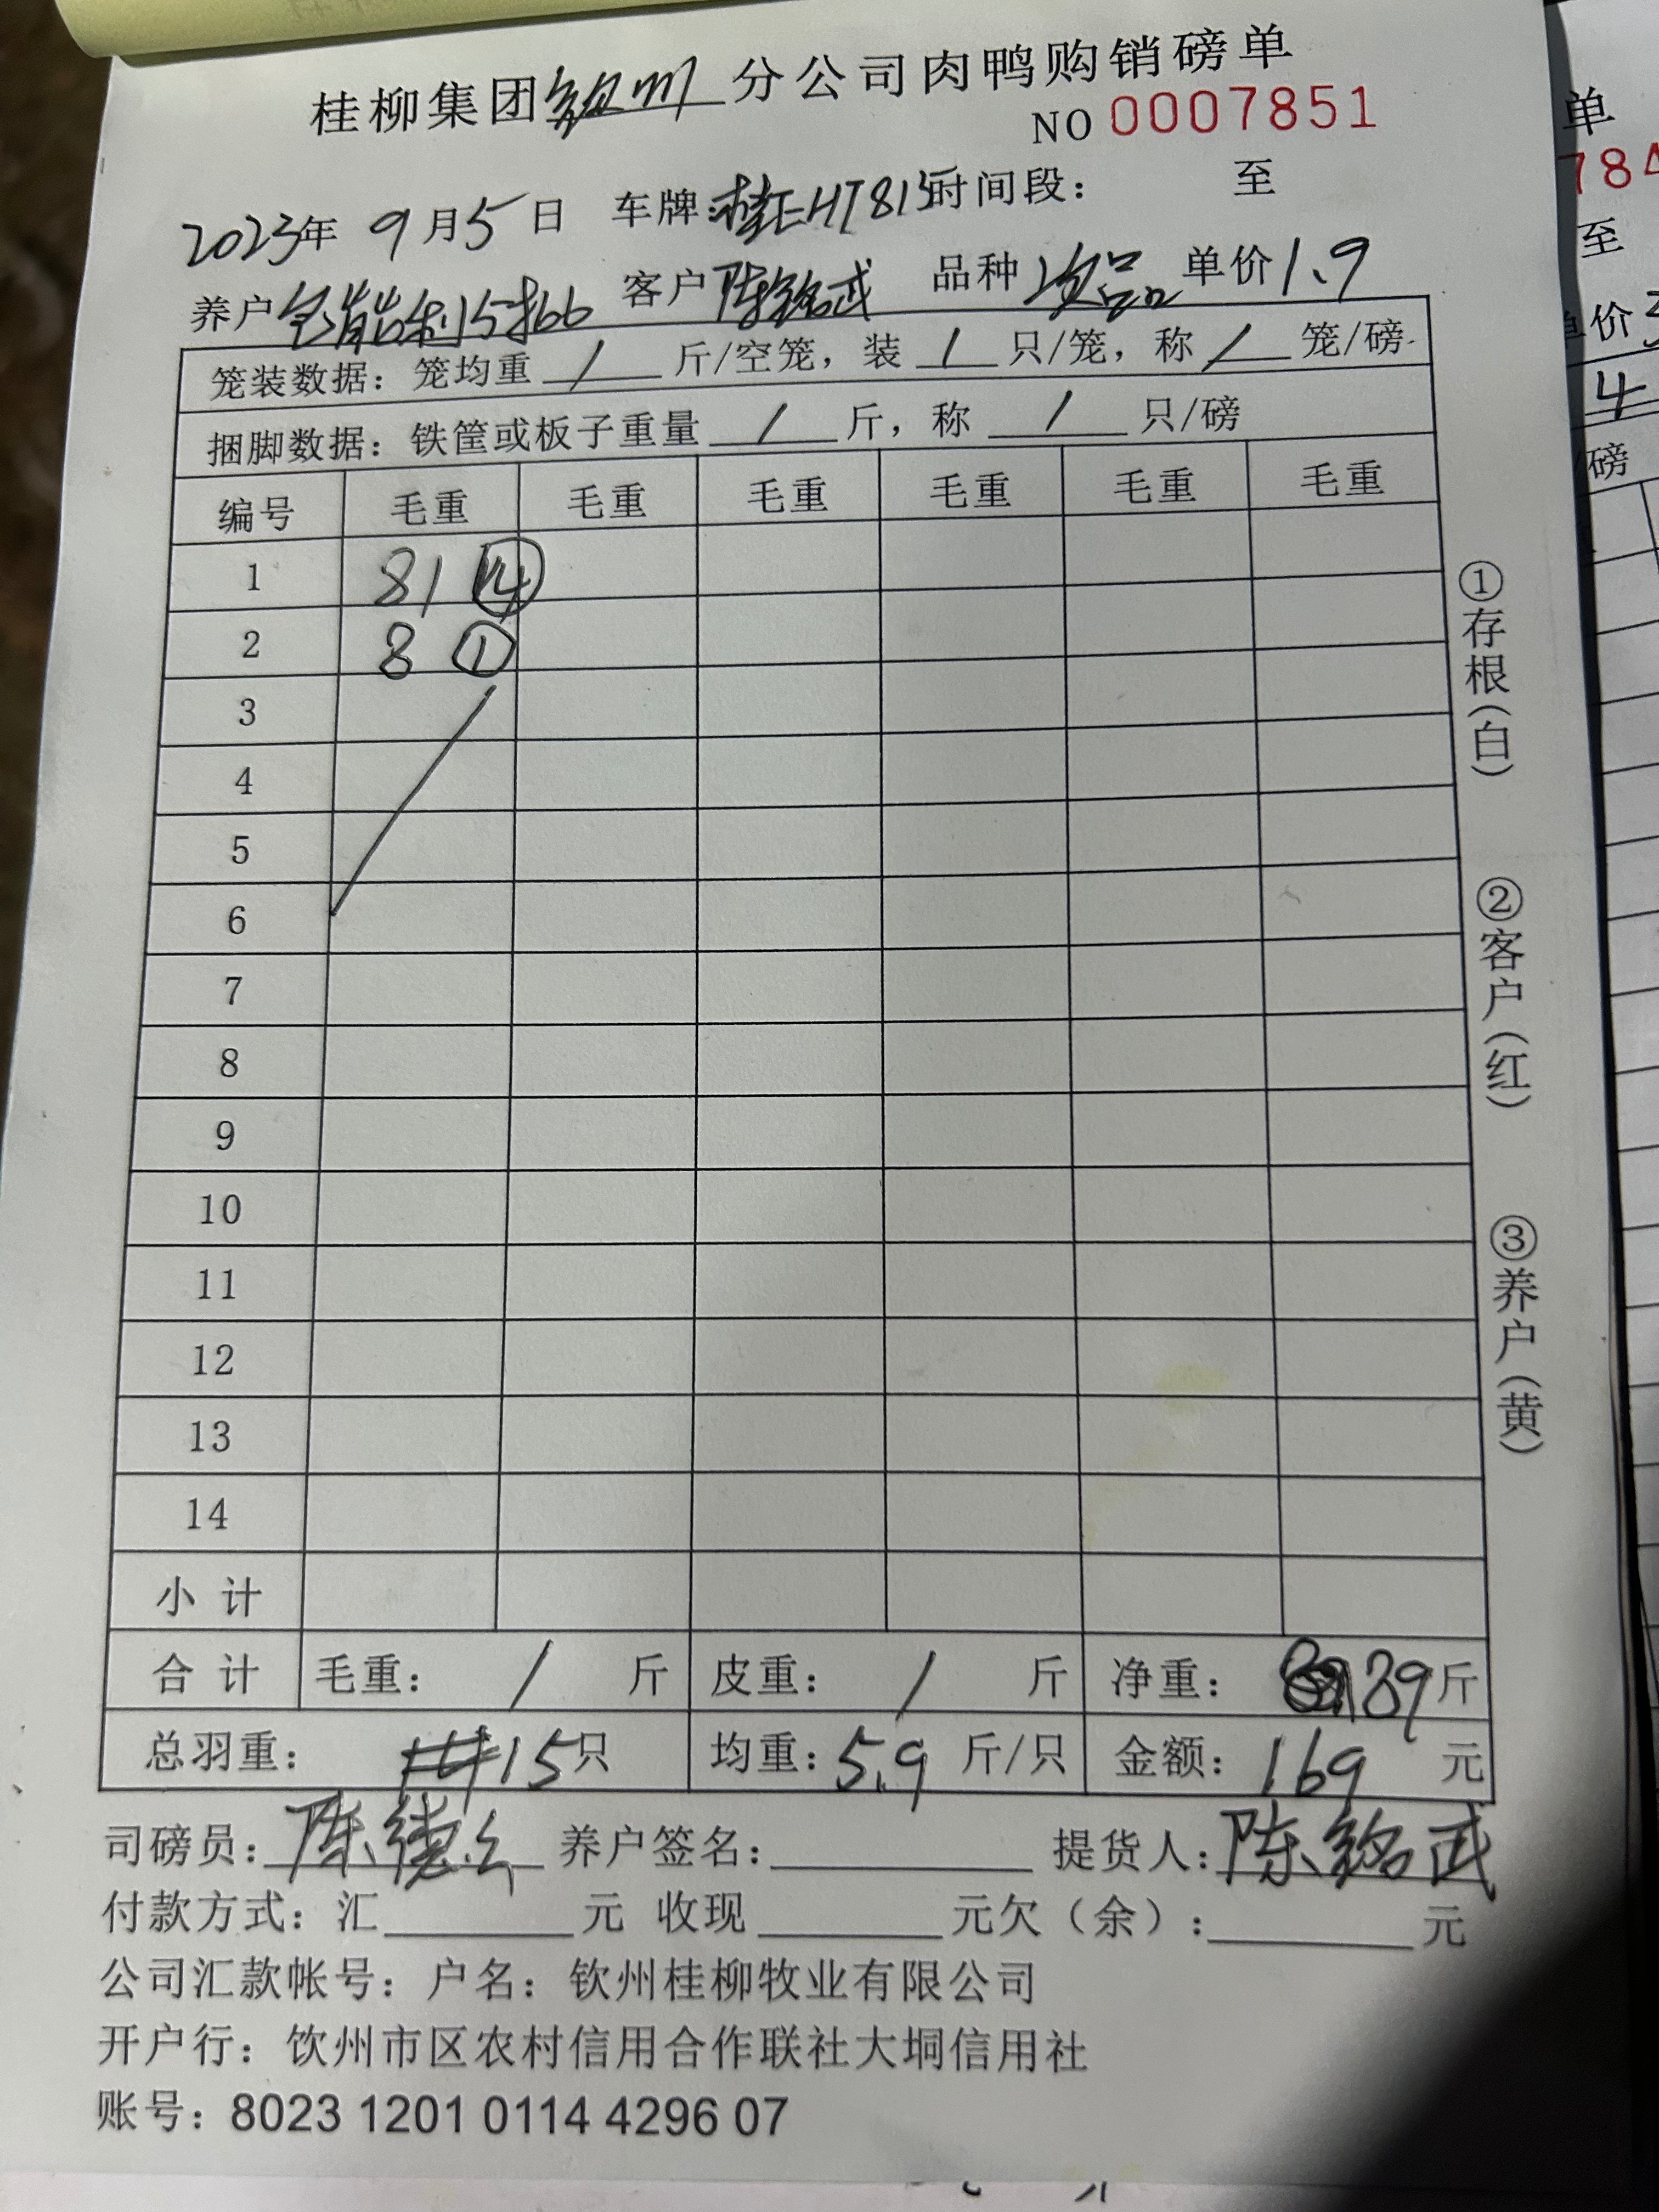 桂柳集团钦州分公司肉鸭购销磅单
NO 0007851
2023年 9月5日 车牌:桂EHT815时间段: 至
养户 客户陈铭武 品种次品 单价1.9
笼装数据: 笼均重 / 斤/空笼, 装 / 只/笼, 称 / 笼/磅
捆脚数据: 铁筐或板子重量 / 斤, 称 / 只/磅
编号 毛重 毛重 毛重 毛重 毛重 毛重
1 81 ⑭
2 8 ①
3
4
5
6
7
8
9
10
11
12
13
14
小计
合计 毛重: / 斤 皮重: / 斤 净重: 89斤
总羽重: 15只 均重:5.9 斤/只 金额: 169 元
司磅员:陈德 养户签名: 提货人:陈铭武
付款方式: 汇 元 收现 元欠(余): 元
公司汇款帐号: 户名: 钦州桂柳牧业有限公司
开户行: 钦州市区农村信用合作联社大垌信用社
账号: 8023 1201 0114 4296 07
①存根(白)
②客户(红)
③养户(黄)
单
784
至
价3
4
/磅